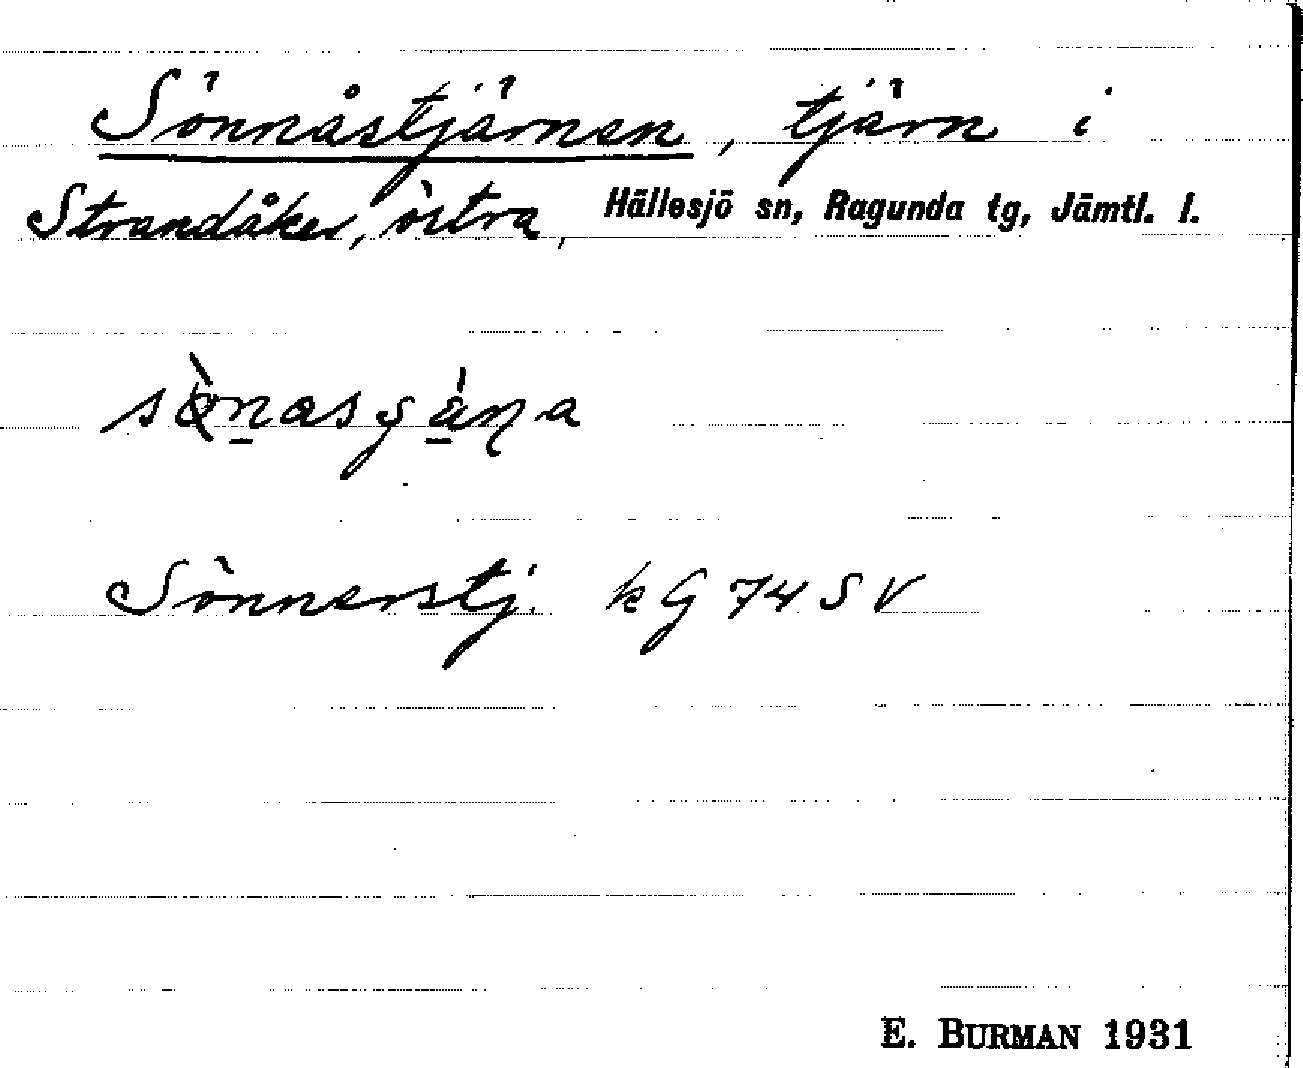 Sönnåstjärnen, tjärn i
Strandåker, östra, Hällesjö sn, Ragunda tg, Jämtl. l.
Sönnerstj. kG 74 SV
E. BURMAN 1931